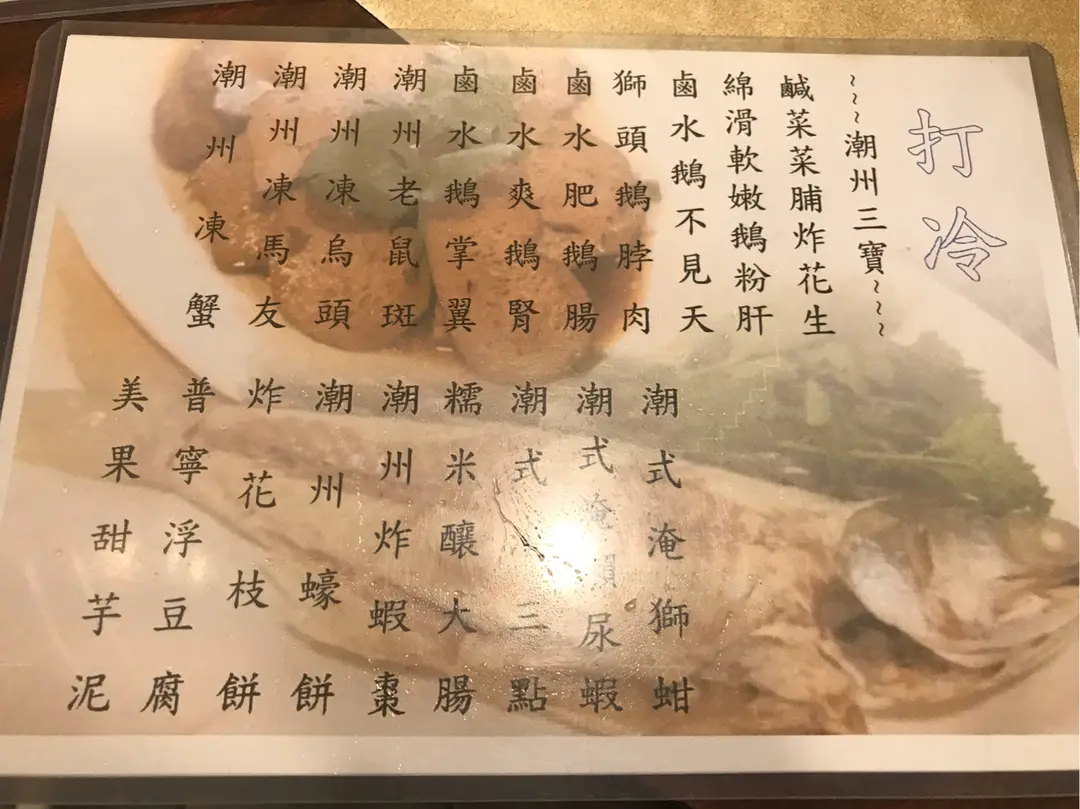 打冷
~~~潮州三寶~~~
鹹菜菜脯炸花生
綿滑軟嫩鵝粉肝
鹵水鵝不見天
獅頭鵝脖肉
鹵水肥鵝腸
鹵水爽鵝腎
鹵水鵝掌翼
潮州老鼠斑
潮州凍烏頭
潮州凍馬友
潮州凍蟹
潮式淹獅蚶
潮式淹瀨尿蝦
潮式三點
糯米釀大腸
潮州炸蝦棗
潮州蠔餅
炸花枝餅
普寧浮豆腐
美果甜芋泥